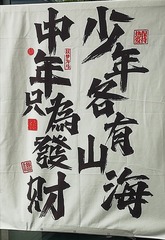 少年各有山海
中年只為發財